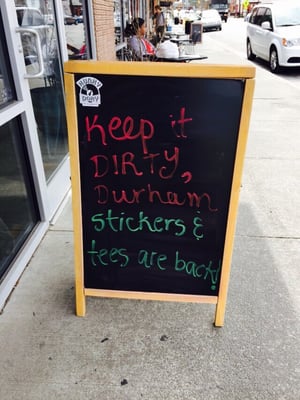 Keep it
DIRTY,
Durham
stickers &
tees are back!